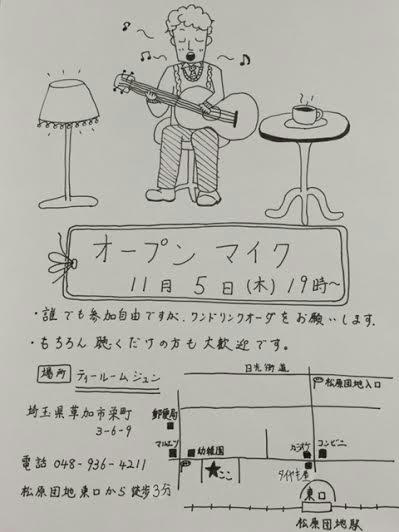 オープン マイク
11月 5日(木) 19時~
・誰でも参加自由ですが、ワンドリンクオーダをお願いします.
・もちろん 聴くだけの方も大歓迎です。
場所 ティールーム ジュン
埼玉県草加市栄町
3-6-9
電話 048-936-4211
松原団地東口から徒歩3分
日光街道
松原団地入口
郵便局
マルエツ
幼稚園
ここ
カラオケ
コンビニ
タイヤキ屋
東口
松原団地駅